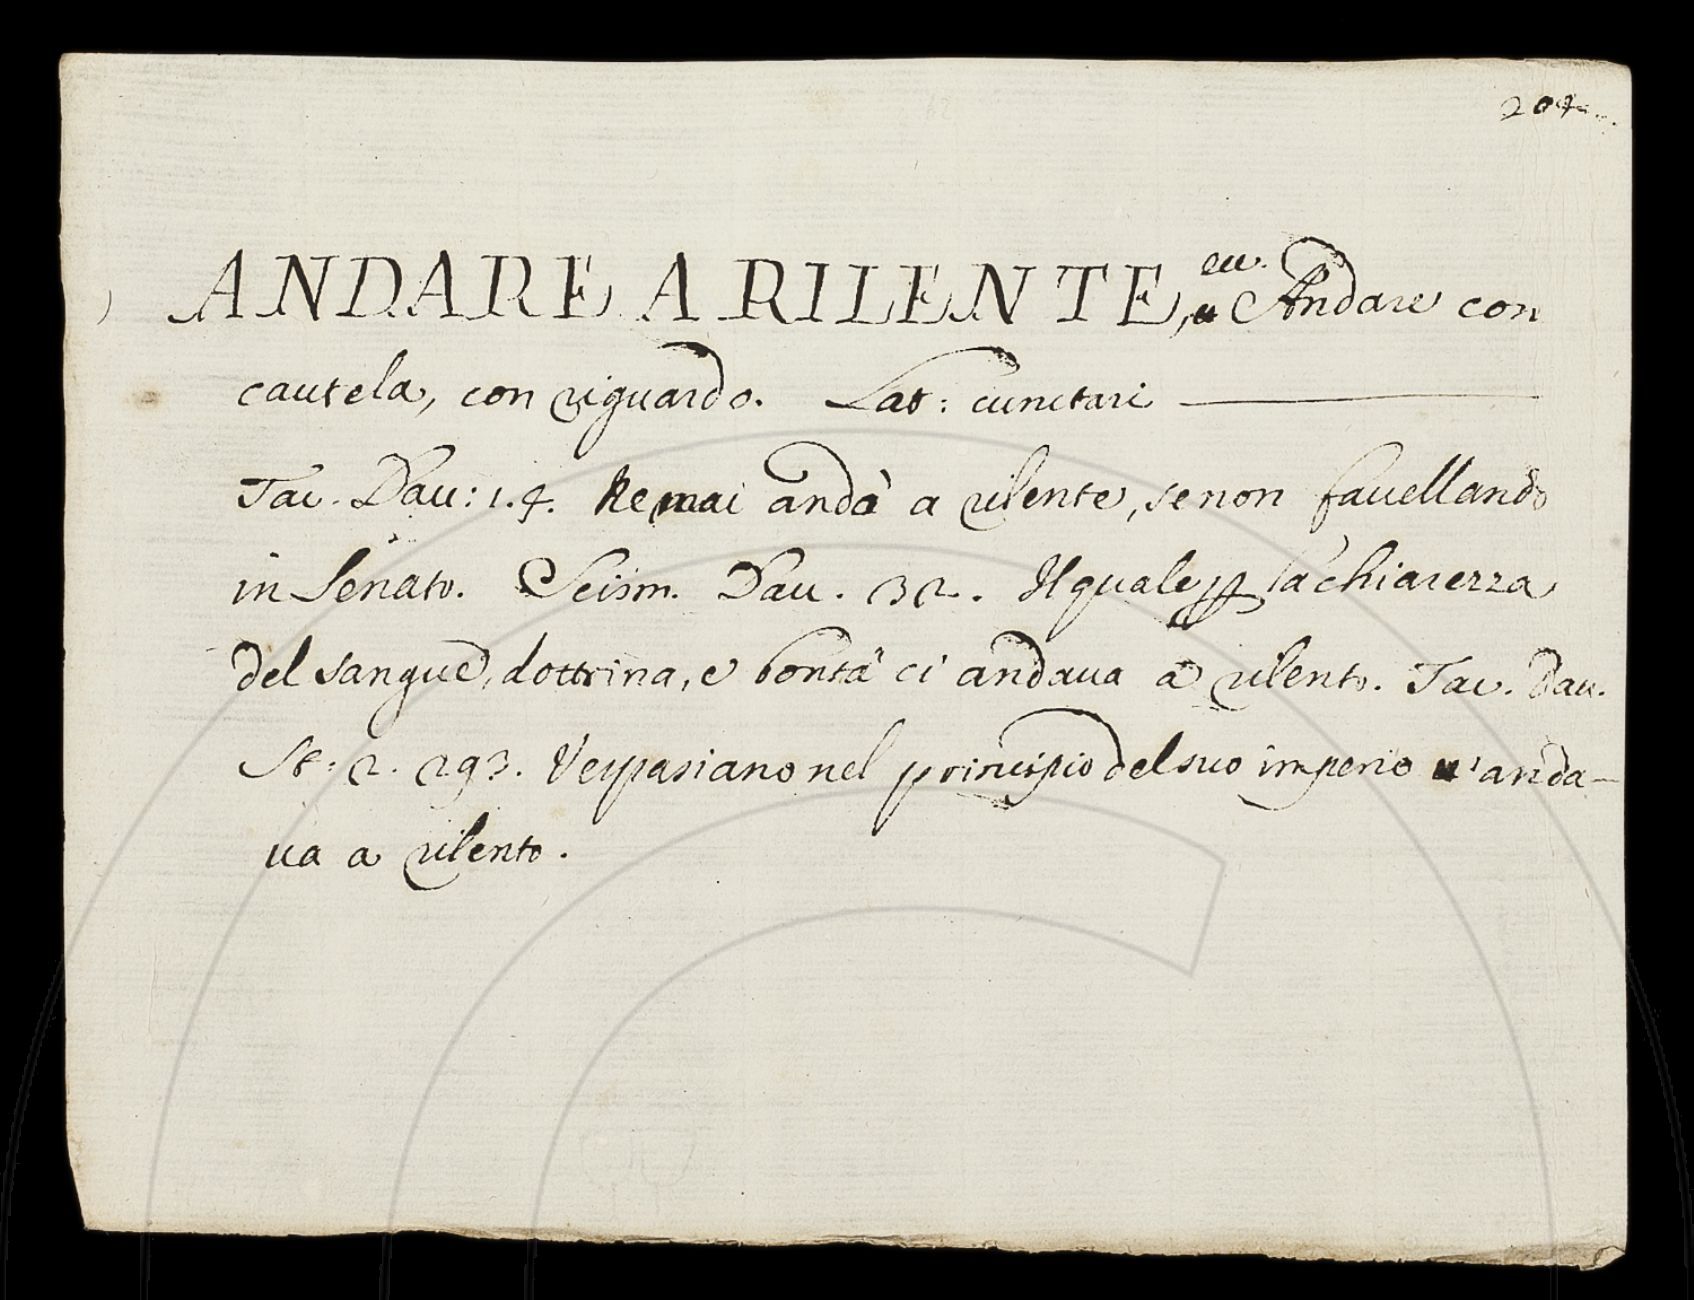 204
ANDARE A RILENTE, ec. Andare con
cautela, con riguardo. Lat: cunctari
Tac. Dav: 1.4. Ne mai andò a rilente, se non favellando
in Senato. Scism. Dav. 32. Il quale p la chiarezza
del sangue, dottrina, e bontà ci andava a rilento. Tac. Dav.
St: 2. 293. Vespasiano nel principio del suo imperio v'anda-
va a rilento.